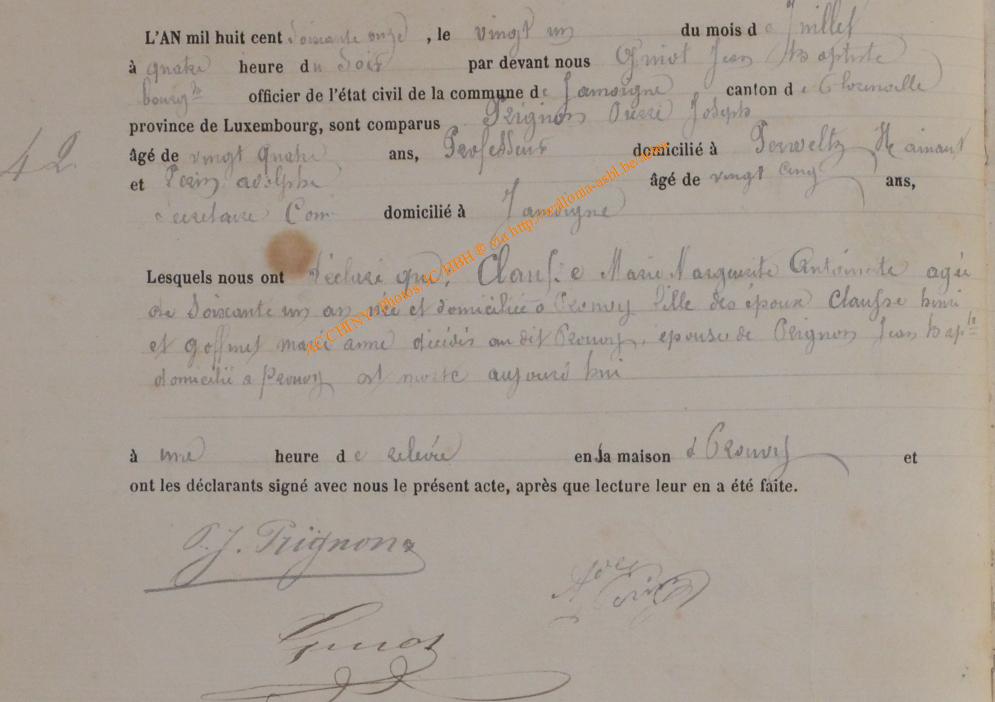 L'AN mil huit cent Soixante onze, le vingt un du mois de Juillet
à quatre heure du Soir par devant nous Guiot Jean Baptiste
bourgtre officier de l'état civil de la commune de Jamoigne canton de
province de Luxembourg, sont comparus Prignon Pierre Joseph
42
âgé de vingt quatre ans, Professeur domicilié à Perweltz Hainaut
et Poin adolphe âgé de vingt cinq ans,
secretaire Com domicilié à Jamoigne
Lesquels nous ont déclaré que, Clausse Marie Marguerite Antoinette agée
de Soixante un an née et domiciliée à Prouvy fille des époux Clausse henri
et goffinet marie anne décédés au dit Prouvy, épouse de Prignon Jean bapte
domicilié a Prouvy est morte aujourd hui
à une heure de relevée en la maison à Prouvy et
ont les déclarants signé avec nous le présent acte, après que lecture leur en a été faite.
P. J. Prignon
Guiot
ACCHINY Photos JC HBH © via http://wallonia-asbl.be